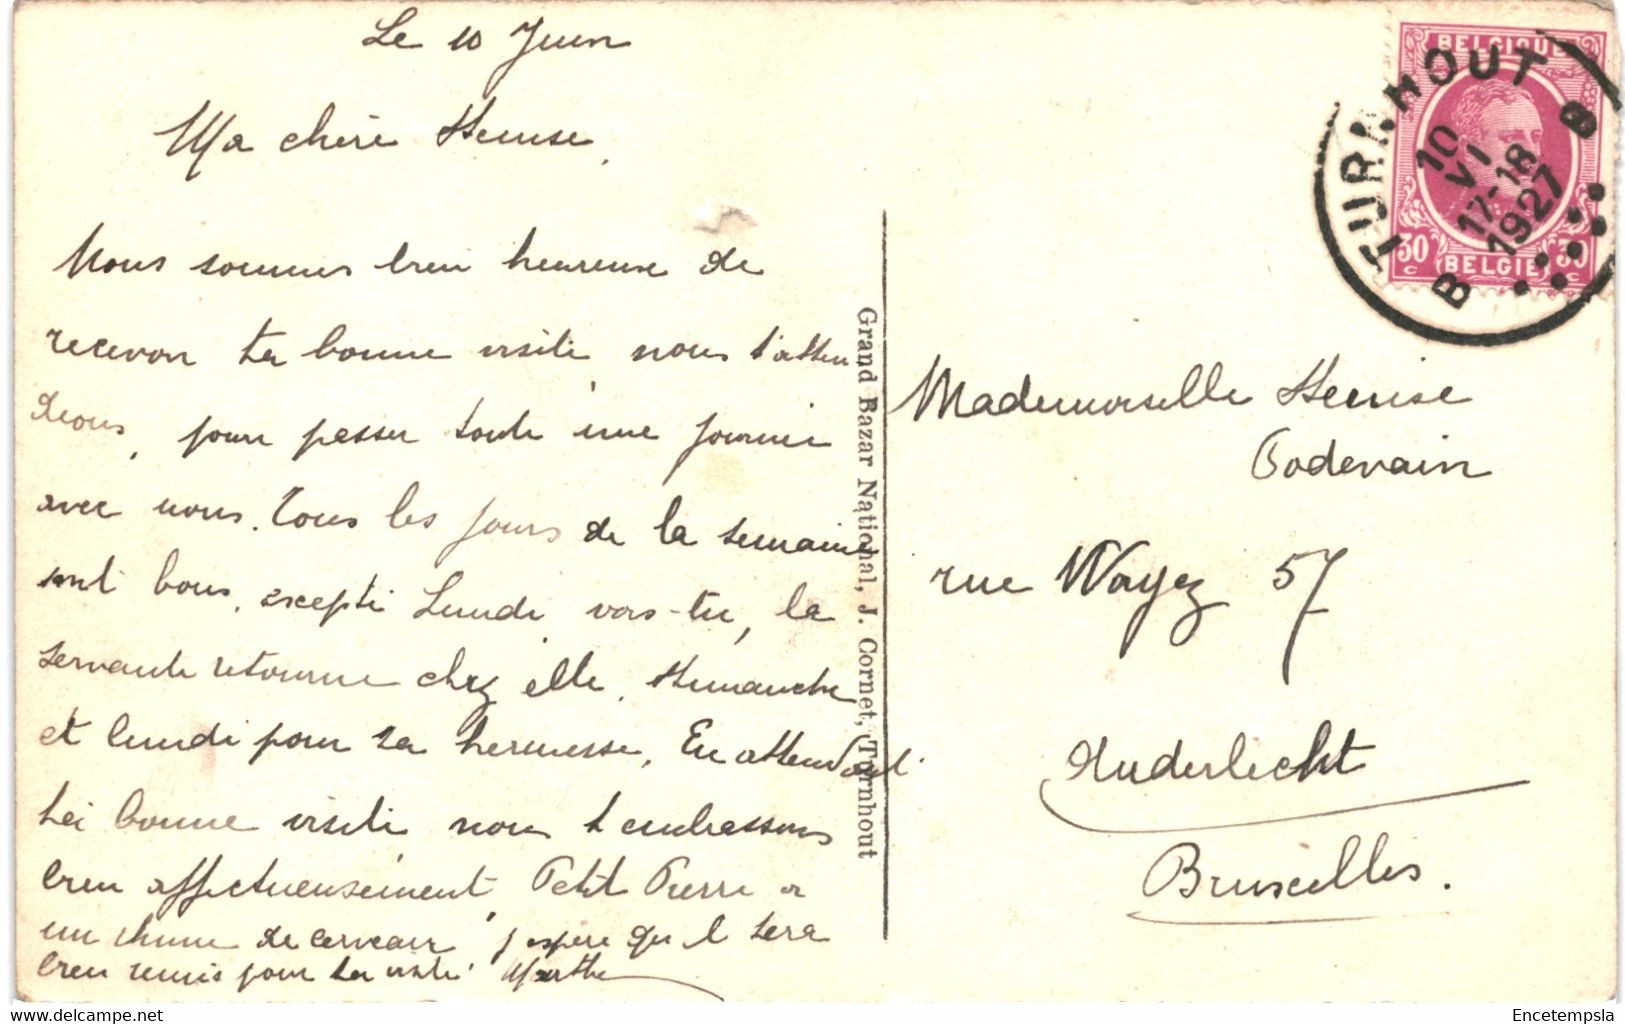 Le 10 Juin
Ma chère Denise,
Nous sommes bien heureuse de
recevoir ta bonne visite nous t'atten
drons, pour passer toute une journée
avec nous. Tous les jours de la semaine
sont bons, excepté Lundi vois-tu, la
servante retourne chez elle, dimanche
et lundi pour la kermesse. En attendant
ta bonne visite nous t'embrassons
bien affectueusement, Petit Pierre a
un rhume de cerveau j'espère qu'il sera
bien remis pour ta visite Marthe
Grand Bazar National, J. Cornet, Turnhout
BELGIQUE
30 c 30 c
BELGIE
TURNHOUT
B B
10
VI
17-18
1927
Mademoiselle Denise
Godevain
rue Wayez 57
Anderlecht
Bruxelles.
Ajouté par votremagasin
Encetempsla